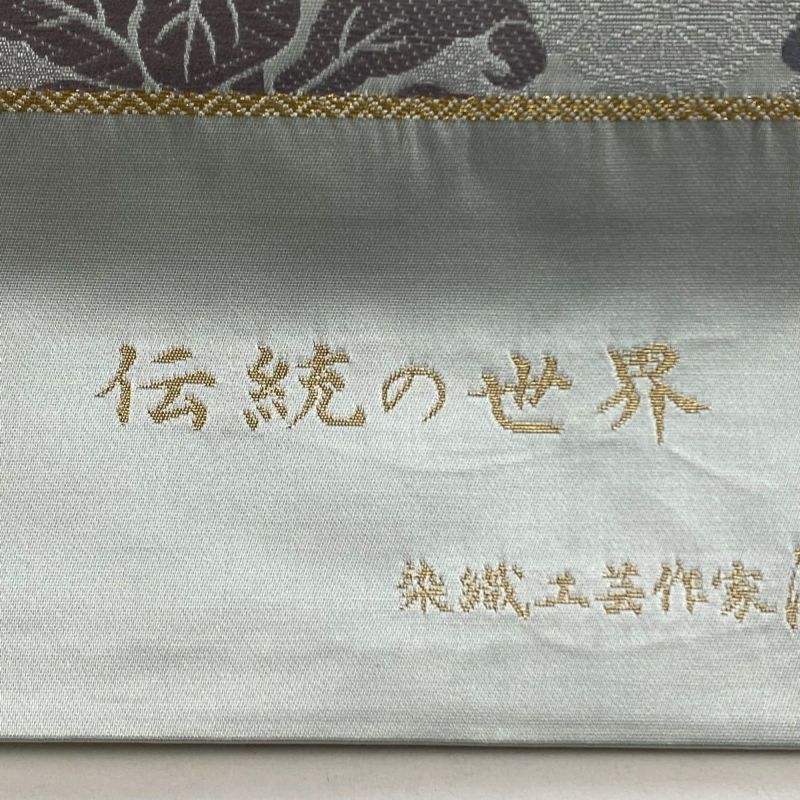 伝統の世界
染織工芸作家